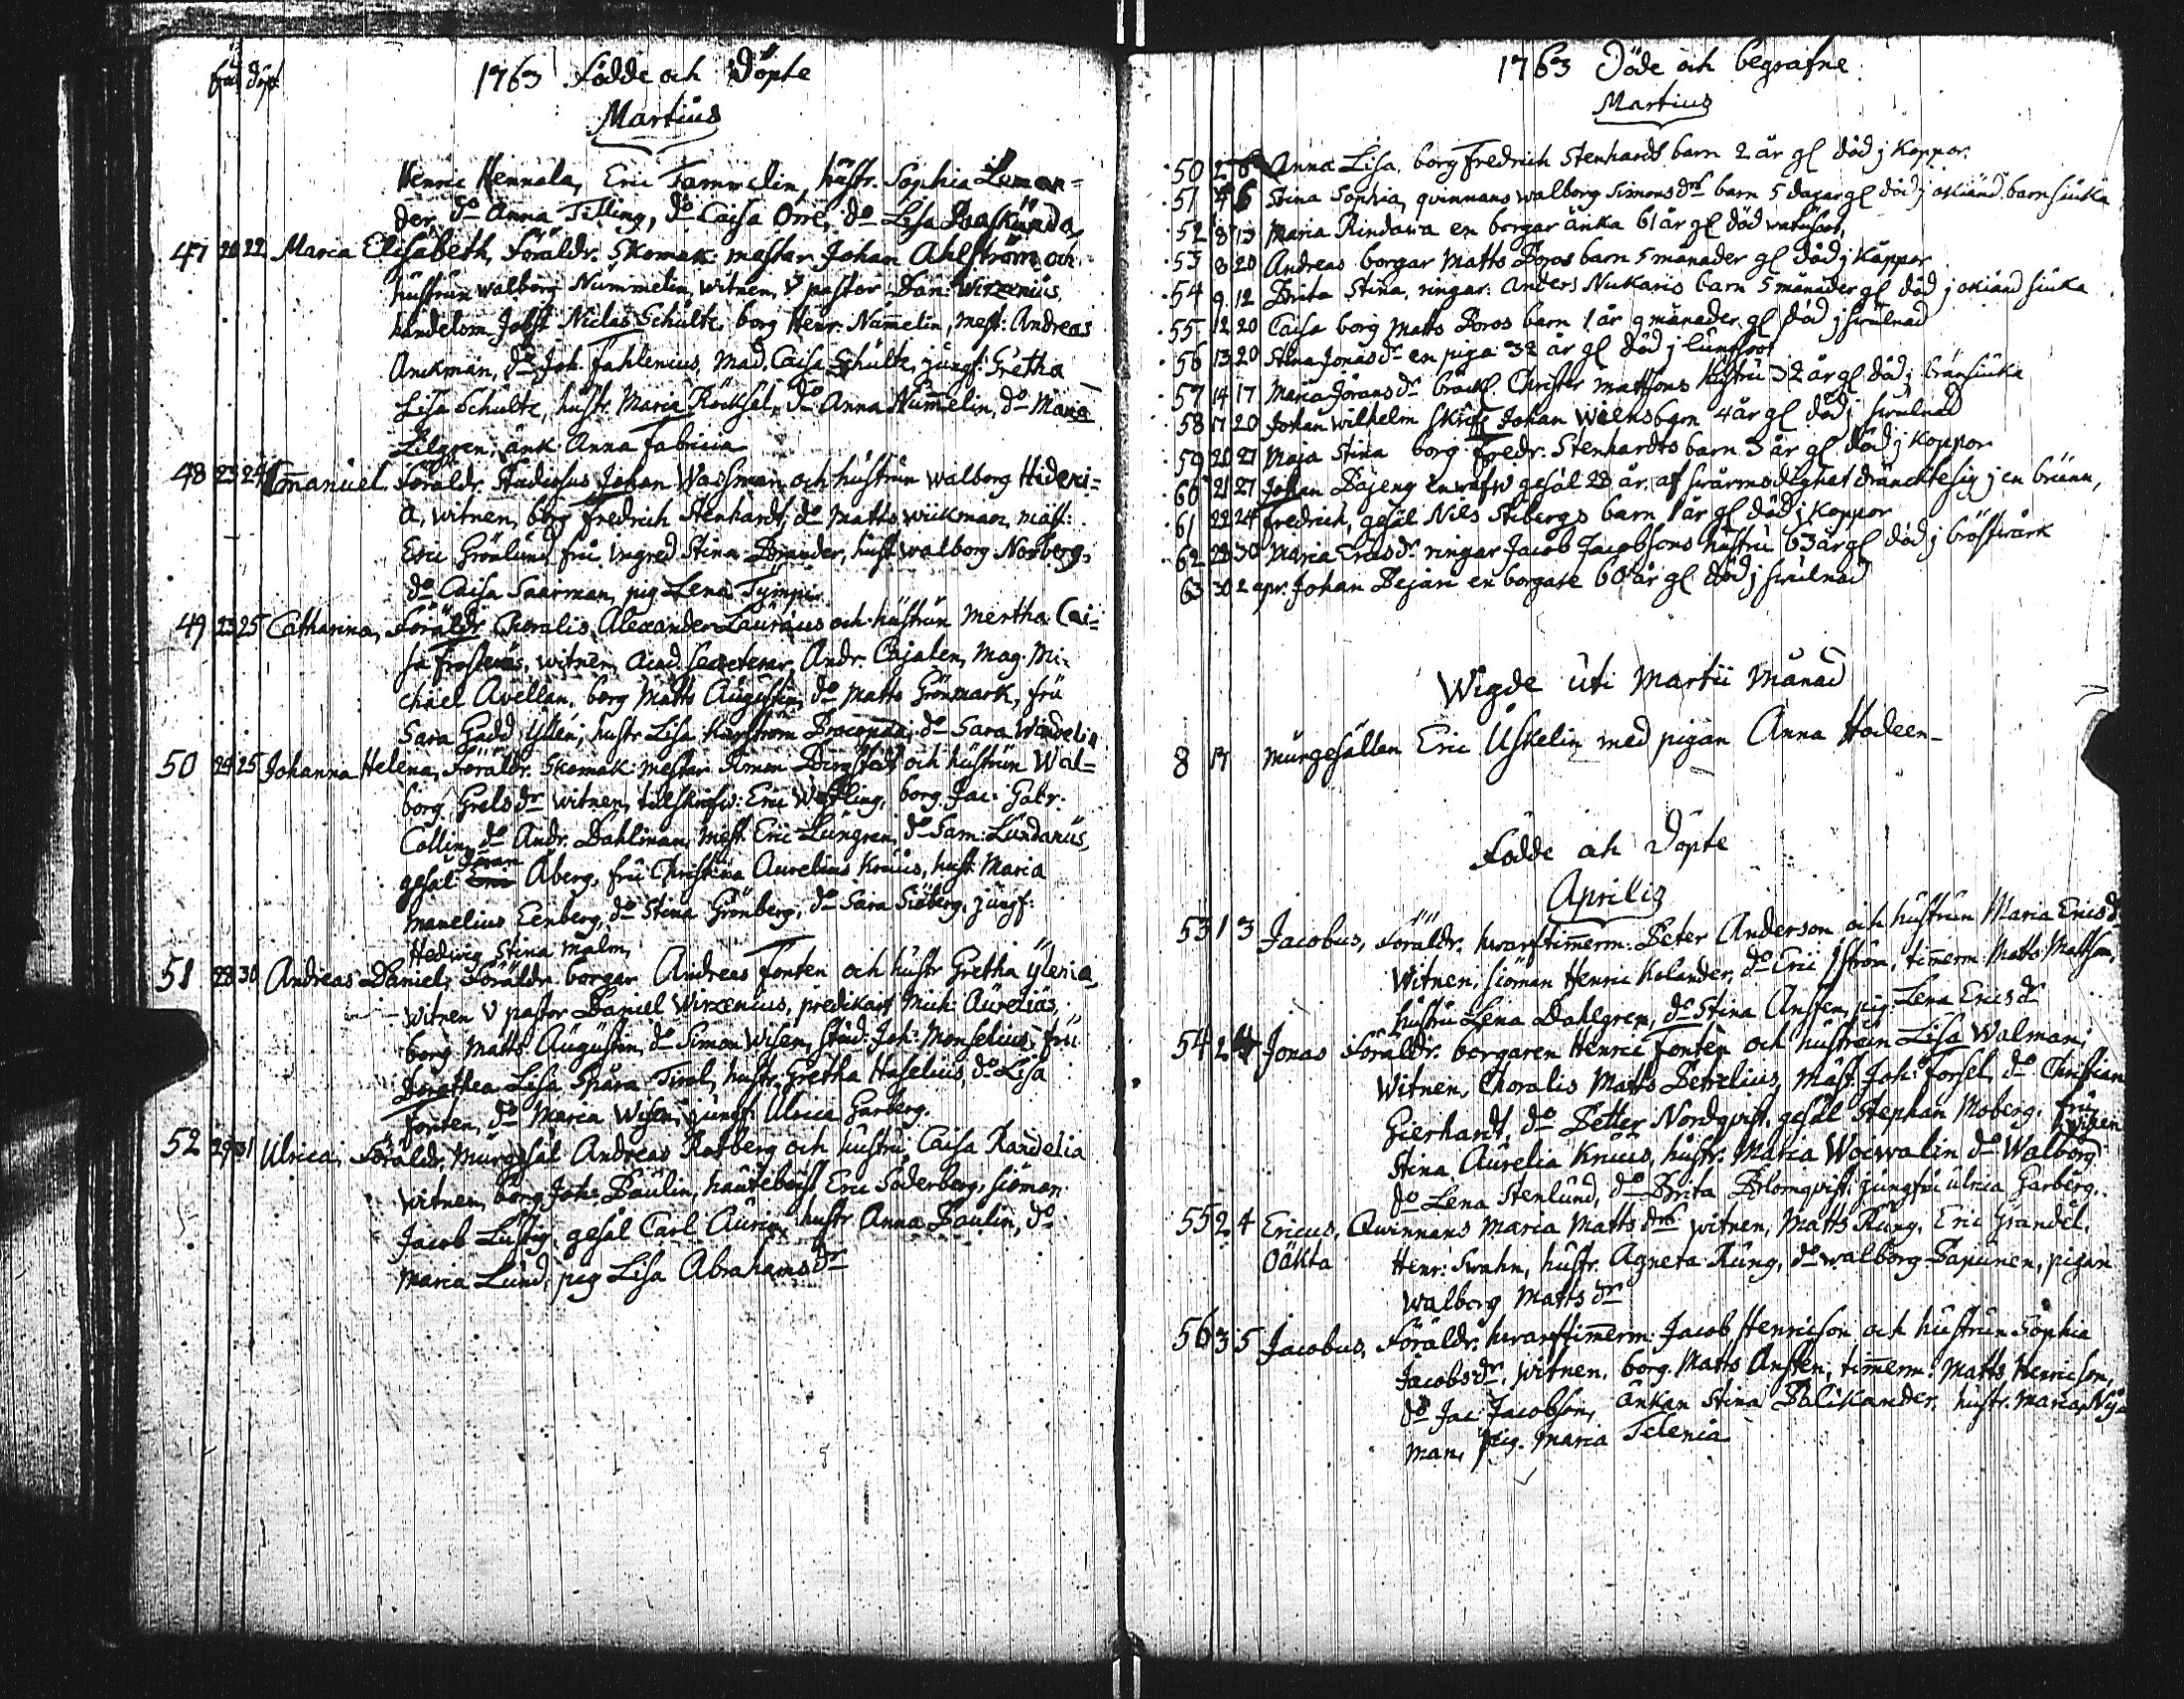 föd döpt
1763 Födde och Döpte
Martius
Henric Hennala, Eric Tammelin, hustr. Sophia Leman=
der do Anna Tilling, do Caisa Orre, do Lisa
47 20 22 Maria Elisabeth, Föräldr. Skomak: mästar Johan Ahlström och
hustrun Walborg Nummelin, witnen, V pastor Dan: Wirzenius,
handelsm Jobst Niclas Schulte, borg Henr: Num̄elin, mest: Andreas
Anckman, do Joh. Fahlenius, Mad. Caisa Schulte, jungf: Gretha
Lisa Schulte, hustr. Maria Röcksal, do Anna Num̄elin, do Maria
Lilgren, änk Anna Fabricia
48 23 24 Em̄anuel. Föräldr. Studiosus Johan Wassman och hustrun Walborg Hideni=
a, witnen, borg Fredrich Stenhardt, do Matts Wiikman, mäst:
Eric Grönlund, fru Ingred Stina Brander, hust Walborg Norberg,
do Caisa Saarman, pig Lena
49 23 25 Catharina, Föräldr. Choralis Alexander Lauræus och hustrun Mertha Cai=
sa witnen, Acad. Secreterar Andr. Cajalen, Mag. Mi=
chael Avellan, borg Matts Augustin, do Matts Grönmark, fru
Sara Gadd hustr Lisa do Sara Wandelin
50 24 25 Johanna Helena, Föräldr. Skomak: mestar Simon Bergstedt och hustrun Wal=
borg Grelsdr witnen, Eric Westling, borg. Jac: Gabr:
Collin, do Andr. Dahlman, mest. Eric Lungren, do Sam: Lundanus,
Göran
gesäl Eric Åberg, fru Christina Aurelius Kreüs, hust: Maria
Manelius Eenberg, do Stina Grönberg, do Sara Siöberg, jungf:
Hedwig Stina Malm,
51 28 30 Andreas Daniel, Föräldr. borgar Andreas Fonten och hustr Gretha Ylenia
witnen V pastor Daniel Wirzenius, predikant Mich: Avelius,
borg Matts Augustin, do Simon Wisen, Stud: Joh: Monselius, fru
Dorothea Lisa Spåra hustr. Gretha Haselius, do Lisa
Fonten, do Maria Wisen, jungf: Ulrica Garberg.
52 29 31 Ulrica, Föräldr. Murgesäl Andreas Ratberg och hustru Caisa Randelia
witnen, borg Joh: Paulin, hauteboist Eric Söderberg, siöman
Jacob Lustig, gesäl Carl Aurin, hustr Anna Paulin, do
Maria Lund, pig Lisa Abrahamsdr
1763 Döde och begrafne
Martius
50 2 6 Anna Lisa, borg Fredrich Stenhardts barn 2 år gl död j Koppor.
51 4 6 Stina Sophia, qvinnans Walborg Simonsdrs barn 5 dagar gl död j okiänd barn siuka
52 8 13 Maria Rindawa en borgar änka 61 år gl död
53 8 20 Andreas borgar Matts Poros barn 5 månader gl död j Koppor
54 9 12 Brita Stina, ringar: Anders Nukaris barn 5 månader gl död j okiänd siuka
55 12 20 Caisa borg Matts Poros barn 1 år 9 månader gl död j swulnad
56 13 20 Stina Jonasdr en piga 32 år gl död j lungsot
57 14 17 Maria Jöransdr Christer Mattsons hustru 32 år gl död j bränsiuka
58 17 20 Johan Wilhelm Johan barn 4 år gl död j swulnad
59 20 27 Maja Stina borg Fredr. Stenhardts barn 3 år gl död j Koppor
60 21 27 Johan gesäl 28 år. af swårmodighet dränckte sig j en brunn,
61 22 24 Fredrich, gesäl Nils Stibergs barn 1 år gl död j Koppor
62 28 30 Maria Ericsdr ringar Jacob Jacobsons hustru 63 år gl död j bröstwärk
63 30 2 apr. Johan Bejari en borgare 60 år gl död j swulnad
Wigde uti Martii Månad
8 17 Murgesällen Eric Uskelin med pigan Anna Hodeen
Födde och Döpte
Aprilis
53 1 3 Jacobus, Föräldr. hwarftim̄erm: Peter Anderson och hustrun Maria Ericsdr
Witnen, siöman Henric Kolander, do Eric Ström, tim̄erm: Matts Mattson,
hustru Lena Dahlgren, do Stina Ansten, pig: Lena Ericsdr
54 2 4 Jonas Föräldr. borgaren Henric Fonten och hustrun Lisa Walman;
Witnen, Choralis Matts Petrelius, mäst. Joh: Forsel, do Christian
Gierhardt, do Petter Nordqvist, gesäl Stephan Moberg, fru
Stina Aurelia Kreüs, hustr. Maria Woiwalin do Walborg Wisen
do Lena Stenlund, do Brita Blomqvist, jungfru Ulrica Garberg.
55 2 4 Ericus, Qwinnans Maria Mattsdrs witnen, Matts Rung, Eric Grandel,
Oäkta Henr: Swahn, hustr. Agneta Rung, do Walborg Papunen, pigan
Walborg Mattsdr
56 3 5 Jacobus, Föräldr. hwarftim̄erm: Jacob Henricson och hustrun Sophia
Jacobsdr. Witnen, borg. Matts Ansten, tim̄erm: Matts Henricson,
do Jac: Jacobson, änkan Stina Palikander, hustr. Maria Ny=
man, pig. Maria Telenia